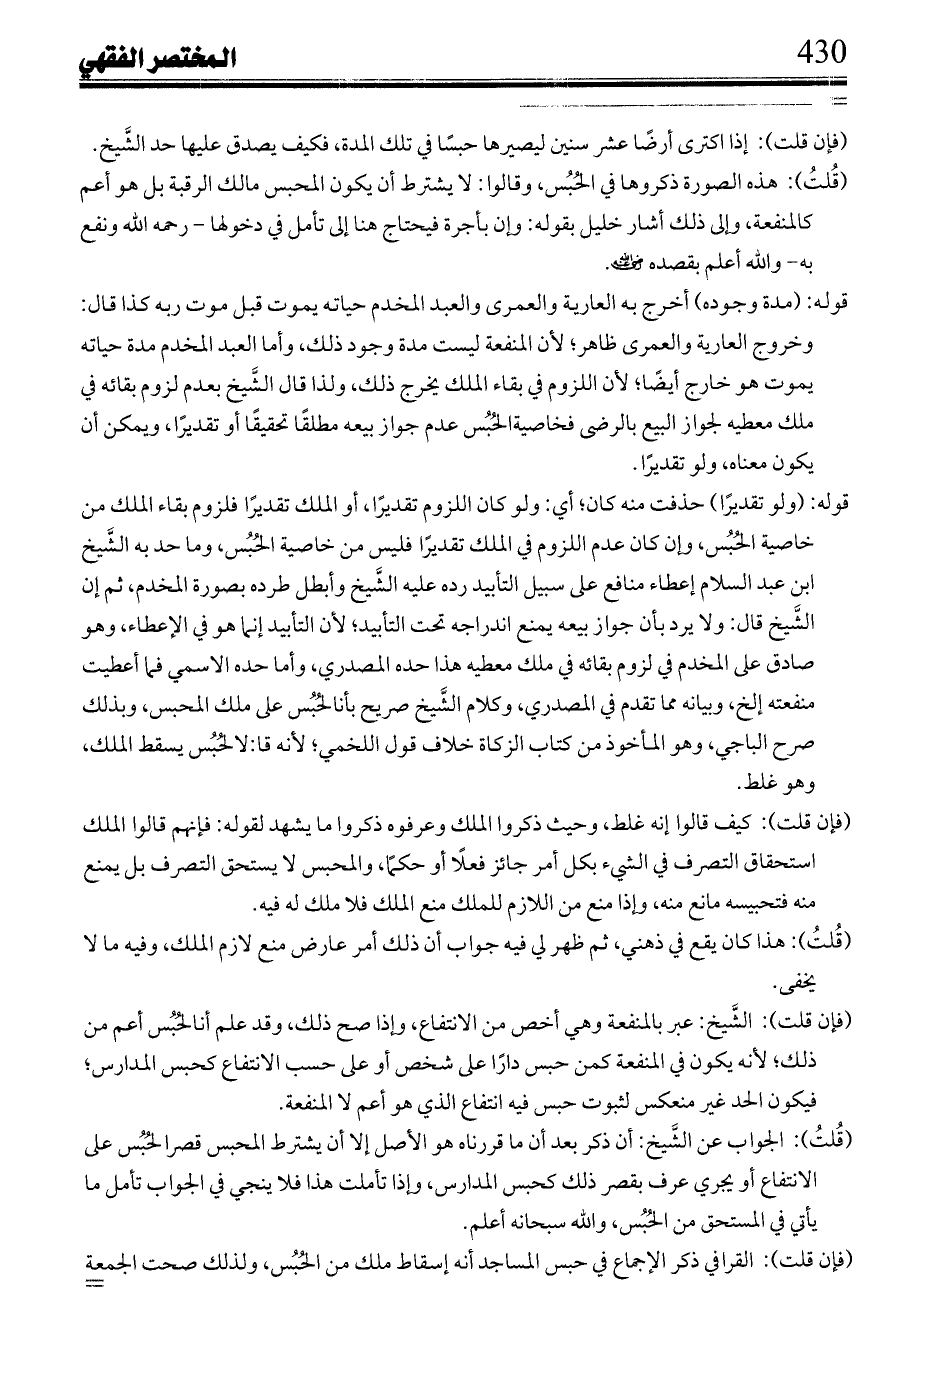 430
المختصر الفقهي
=
(فإن قلت): إذا اكترى أرضًا عشر سنين ليصيرها حبسًا في تلك المدة، فكيف يصدق عليها حد الشَّيخ.
(قُلتُ): هذه الصورة ذكروها في الحُبُس، وقالوا: لا يشترط أن يكون المحبس مالك الرقبة بل هو أعم
كالمنفعة، وإلى ذلك أشار خليل بقوله: وإن بأجرة فيحتاج هنا إلى تأمل في دخولها - رحمه الله ونفع
به- والله أعلم بقصده رضي الله عنه.
قوله: (مدة وجوده) أخرج به العارية والعمرى والعبد المخدم حياته يموت قبل موت ربه كذا قال:
وخروج العارية والعمرى ظاهر؛ لأن المنفعة ليست مدة وجود ذلك، وأما العبد المخدم مدة حياته
يموت هو خارج أيضًا؛ لأن اللزوم في بقاء الملك يخرج ذلك، ولذا قال الشَّيخ بعدم لزوم بقائه في
ملك معطيه لجواز البيع بالرضى فخاصيةالحُبُس عدم جواز بيعه مطلقًا تحقيقًا أو تقديرًا، ويمكن أن
يكون معناه، ولو تقديرًا.
قوله: (ولو تقديرًا) حذفت منه كان؛ أي: ولو كان اللزوم تقديرًا، أو الملك تقديرًا فلزوم بقاء الملك من
خاصية الحُبُس، وإن كان عدم اللزوم في الملك تقديرًا فليس من خاصية الحُبُس، وما حد به الشَّيخ
ابن عبد السلام إعطاء منافع على سبيل التأبيد رده عليه الشَّيخ وأبطل طرده بصورة المخدم، ثم إن
الشَّيخ قال: ولا يرد بأن جواز بيعه يمنع اندراجه تحت التأبيد؛ لأن التأبيد إنما هو في الإعطاء، وهو
صادق على المخدم في لزوم بقائه في ملك معطيه هذا حده المصدري، وأما حده الاسمي فما أعطيت
منفعته إلخ، وبيانه مما تقدم في المصدري، وكلام الشَّيخ صريح بأنالحُبُس على ملك المحبس، وبذلك
صرح الباجي، وهو المأخوذ من كتاب الزكاة خلاف قول اللخمي؛ لأنه قا:لالحُبُس يسقط الملك،
وهو غلط.
(فإن قلت): كيف قالوا إنه غلط، وحيث ذكروا الملك وعرفوه ذكروا ما يشهد لقوله: فإنهم قالوا الملك
استحقاق التصرف في الشيء بكل أمر جائز فعلًا أو حكمًا، والمحبس لا يستحق التصرف بل يمنع
منه فتحبيسه مانع منه، وإذا منع من اللازم للملك منع الملك فلا ملك له فيه.
(قُلتُ): هذا كان يقع في ذهني، ثم ظهر لي فيه جواب أن ذلك أمر عارض منع لازم الملك، وفيه ما لا
يخفى.
(فإن قلت): الشَّيخ: عبر بالمنفعة وهي أخص من الانتفاع، وإذا صح ذلك، وقد علم أنالحُبُس أعم من
ذلك؛ لأنه يكون في المنفعة كمن حبس دارًا على شخص أو على حسب الانتفاع كحبس المدارس؛
فيكون الحد غير منعكس لثبوت حبس فيه انتفاع الذي هو أعم لا المنفعة.
(قُلتُ): الجواب عن الشَّيخ: أن ذكر بعد أن ما قررناه هو الأصل إلا أن يشترط المحبس قصرالحُبُس على
الانتفاع أو يجري عرف بقصر ذلك كحبس المدارس، وإذا تأملت هذا فلا ينجي في الجواب تأمل ما
يأتي في المستحق من الحُبُس، والله سبحانه أعلم.
(فإن قلت): القرافي ذكر الإجماع في حبس المساجد أنه إسقاط ملك من الحُبُس، ولذلك صحت الجمعة
=